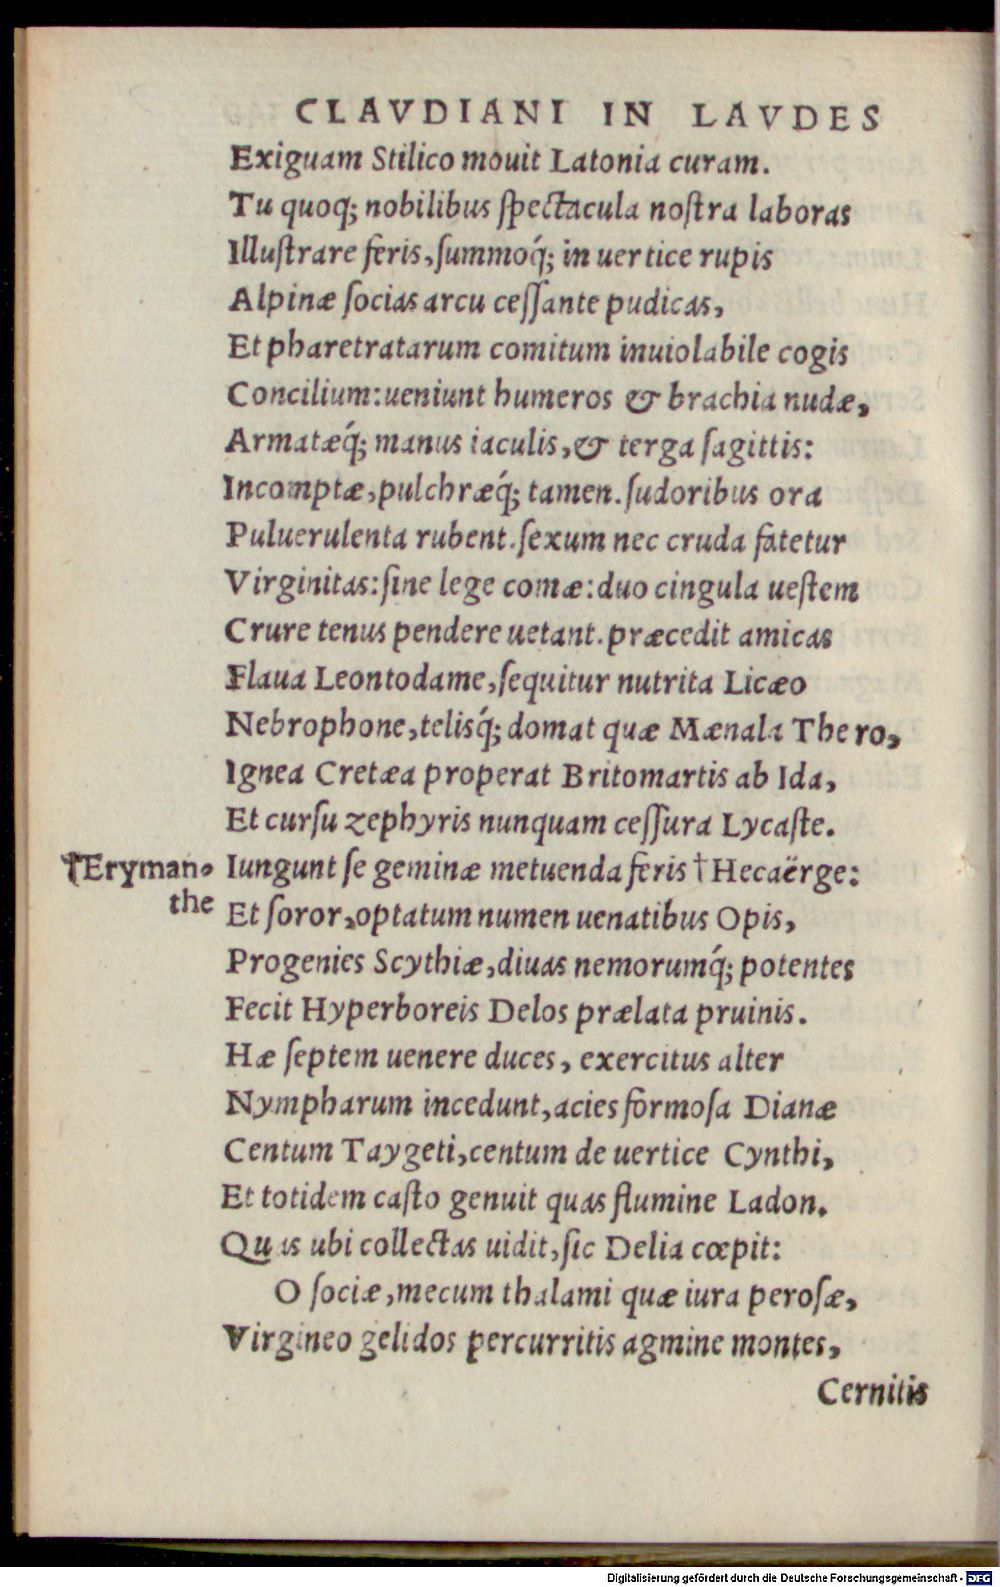 CLAVDIANI IN LAVDES
Exiguam Stilico mouit Latonia curam.
Tu quoq; nobilibus ſpectacula noſtra laboras
Illuſtrare feris, ſummoq́; in uertice rupis
Alpinæ ſocias arcu ceſſante pudicas,
Et pharetratarum comitum inuiolabile cogis
Concilium: ueniunt humeros & brachia nudæ,
Armatæq́; manus iaculis, & terga ſagittis:
Incomptæ, pulchræq́; tamen. ſudoribus ora
Puluerulenta rubent. ſexum nec cruda fatetur
Virginitas: ſine lege comæ: duo cingula ueſtem
Crure tenus pendere uetant. præcedit amicas
Flaua Leontodame, ſequitur nutrita Licæo
Nebrophone, telisq́; domat quæ Mænala Thero,
Ignea Cretæa properat Britomartis ab Ida,
Et curſu zephyris nunquam ceſſura Lycaſte.
†Eryman-
the
Iungunt ſe geminæ metuenda feris †Hecaërge:
Et ſoror, optatum numen uenatibus Opis,
Progenies Scythiæ, diuas nemorumq́; potentes
Fecit Hyperboreis Delos prælata pruinis.
Hæ ſeptem uenere duces, exercitus alter
Nympharum incedunt, acies formoſa Dianæ
Centum Taygeti, centum de uertice Cynthi,
Et totidem caſto genuit quas flumine Ladon.
Quas ubi collectas uidit, ſic Delia cœpit:
O ſociæ, mecum thalami quæ iura peroſæ,
Virgineo gelidos percurritis agmine montes,
Cernitis
Digitalisierung gefördert durch die Deutsche Forschungsgemeinschaft - DFG